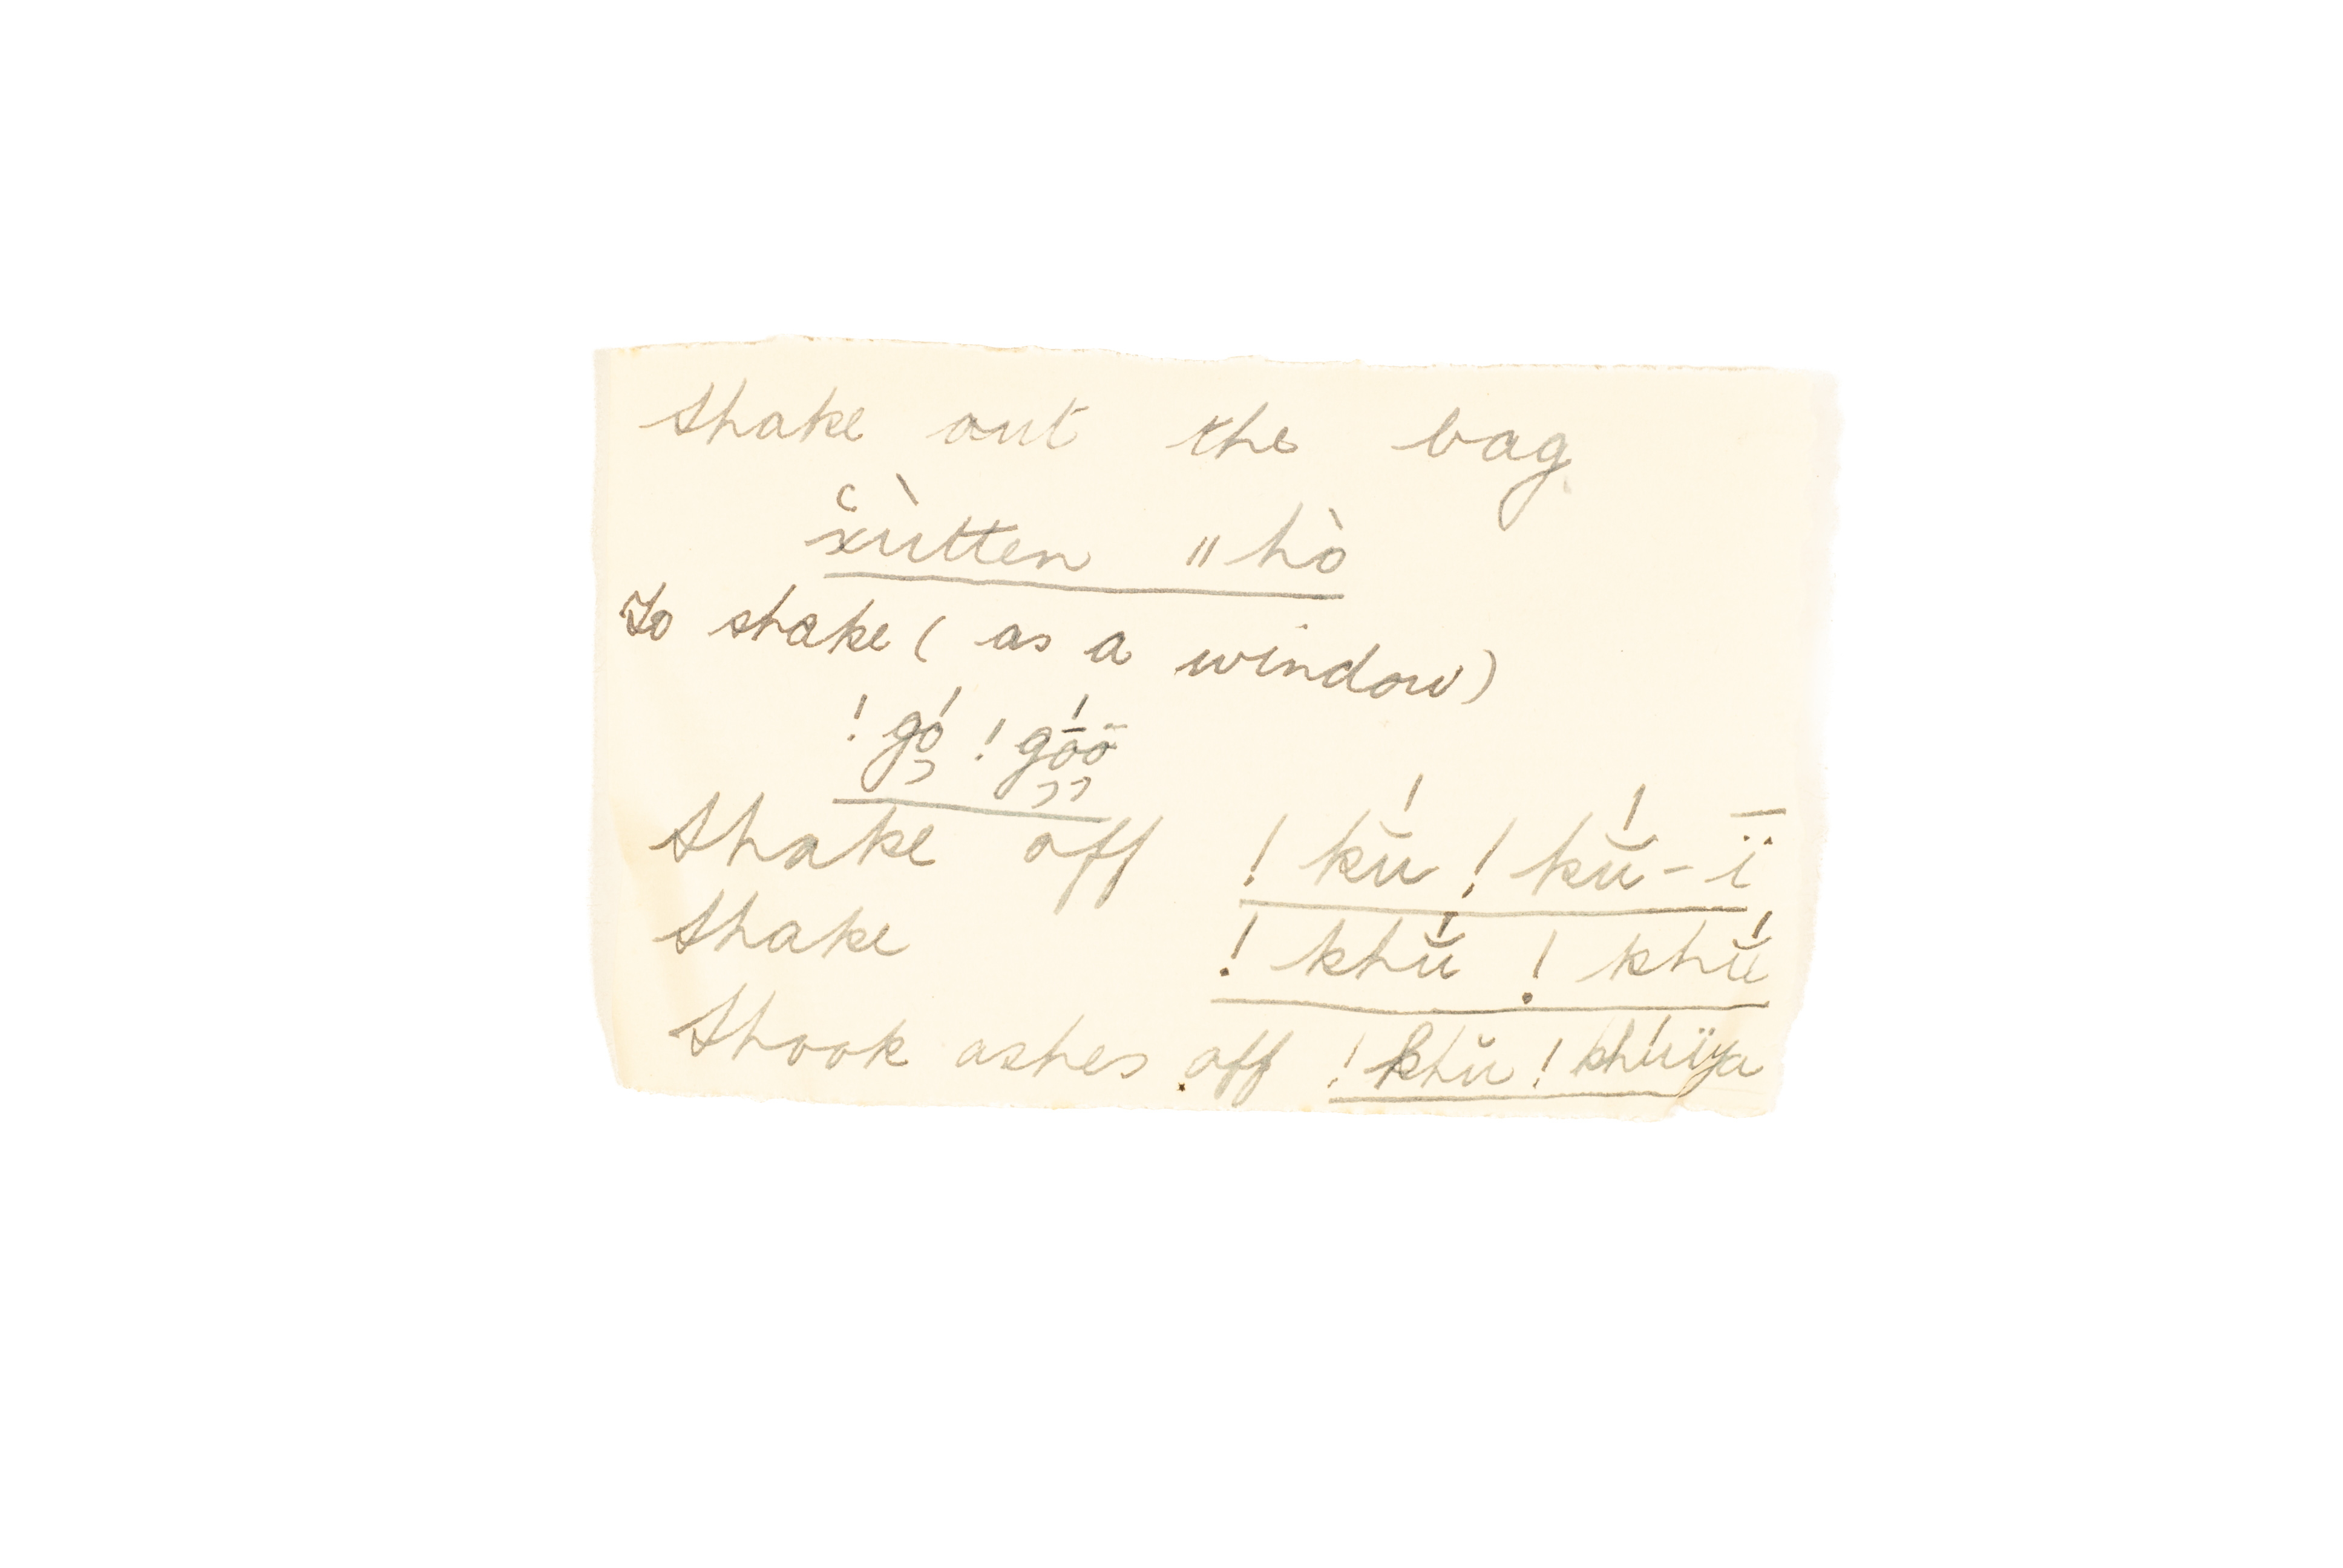 Shake out the bag
x̆̆ùtten ǁhò
To shake (as a window)
!gó̜ !gṓ̜ō̜
Shake off !kŭ́ !kŭ́-ï̄
Shake !khŭ́ !khŭ́
Shook ashes off !khŭ !khúïya